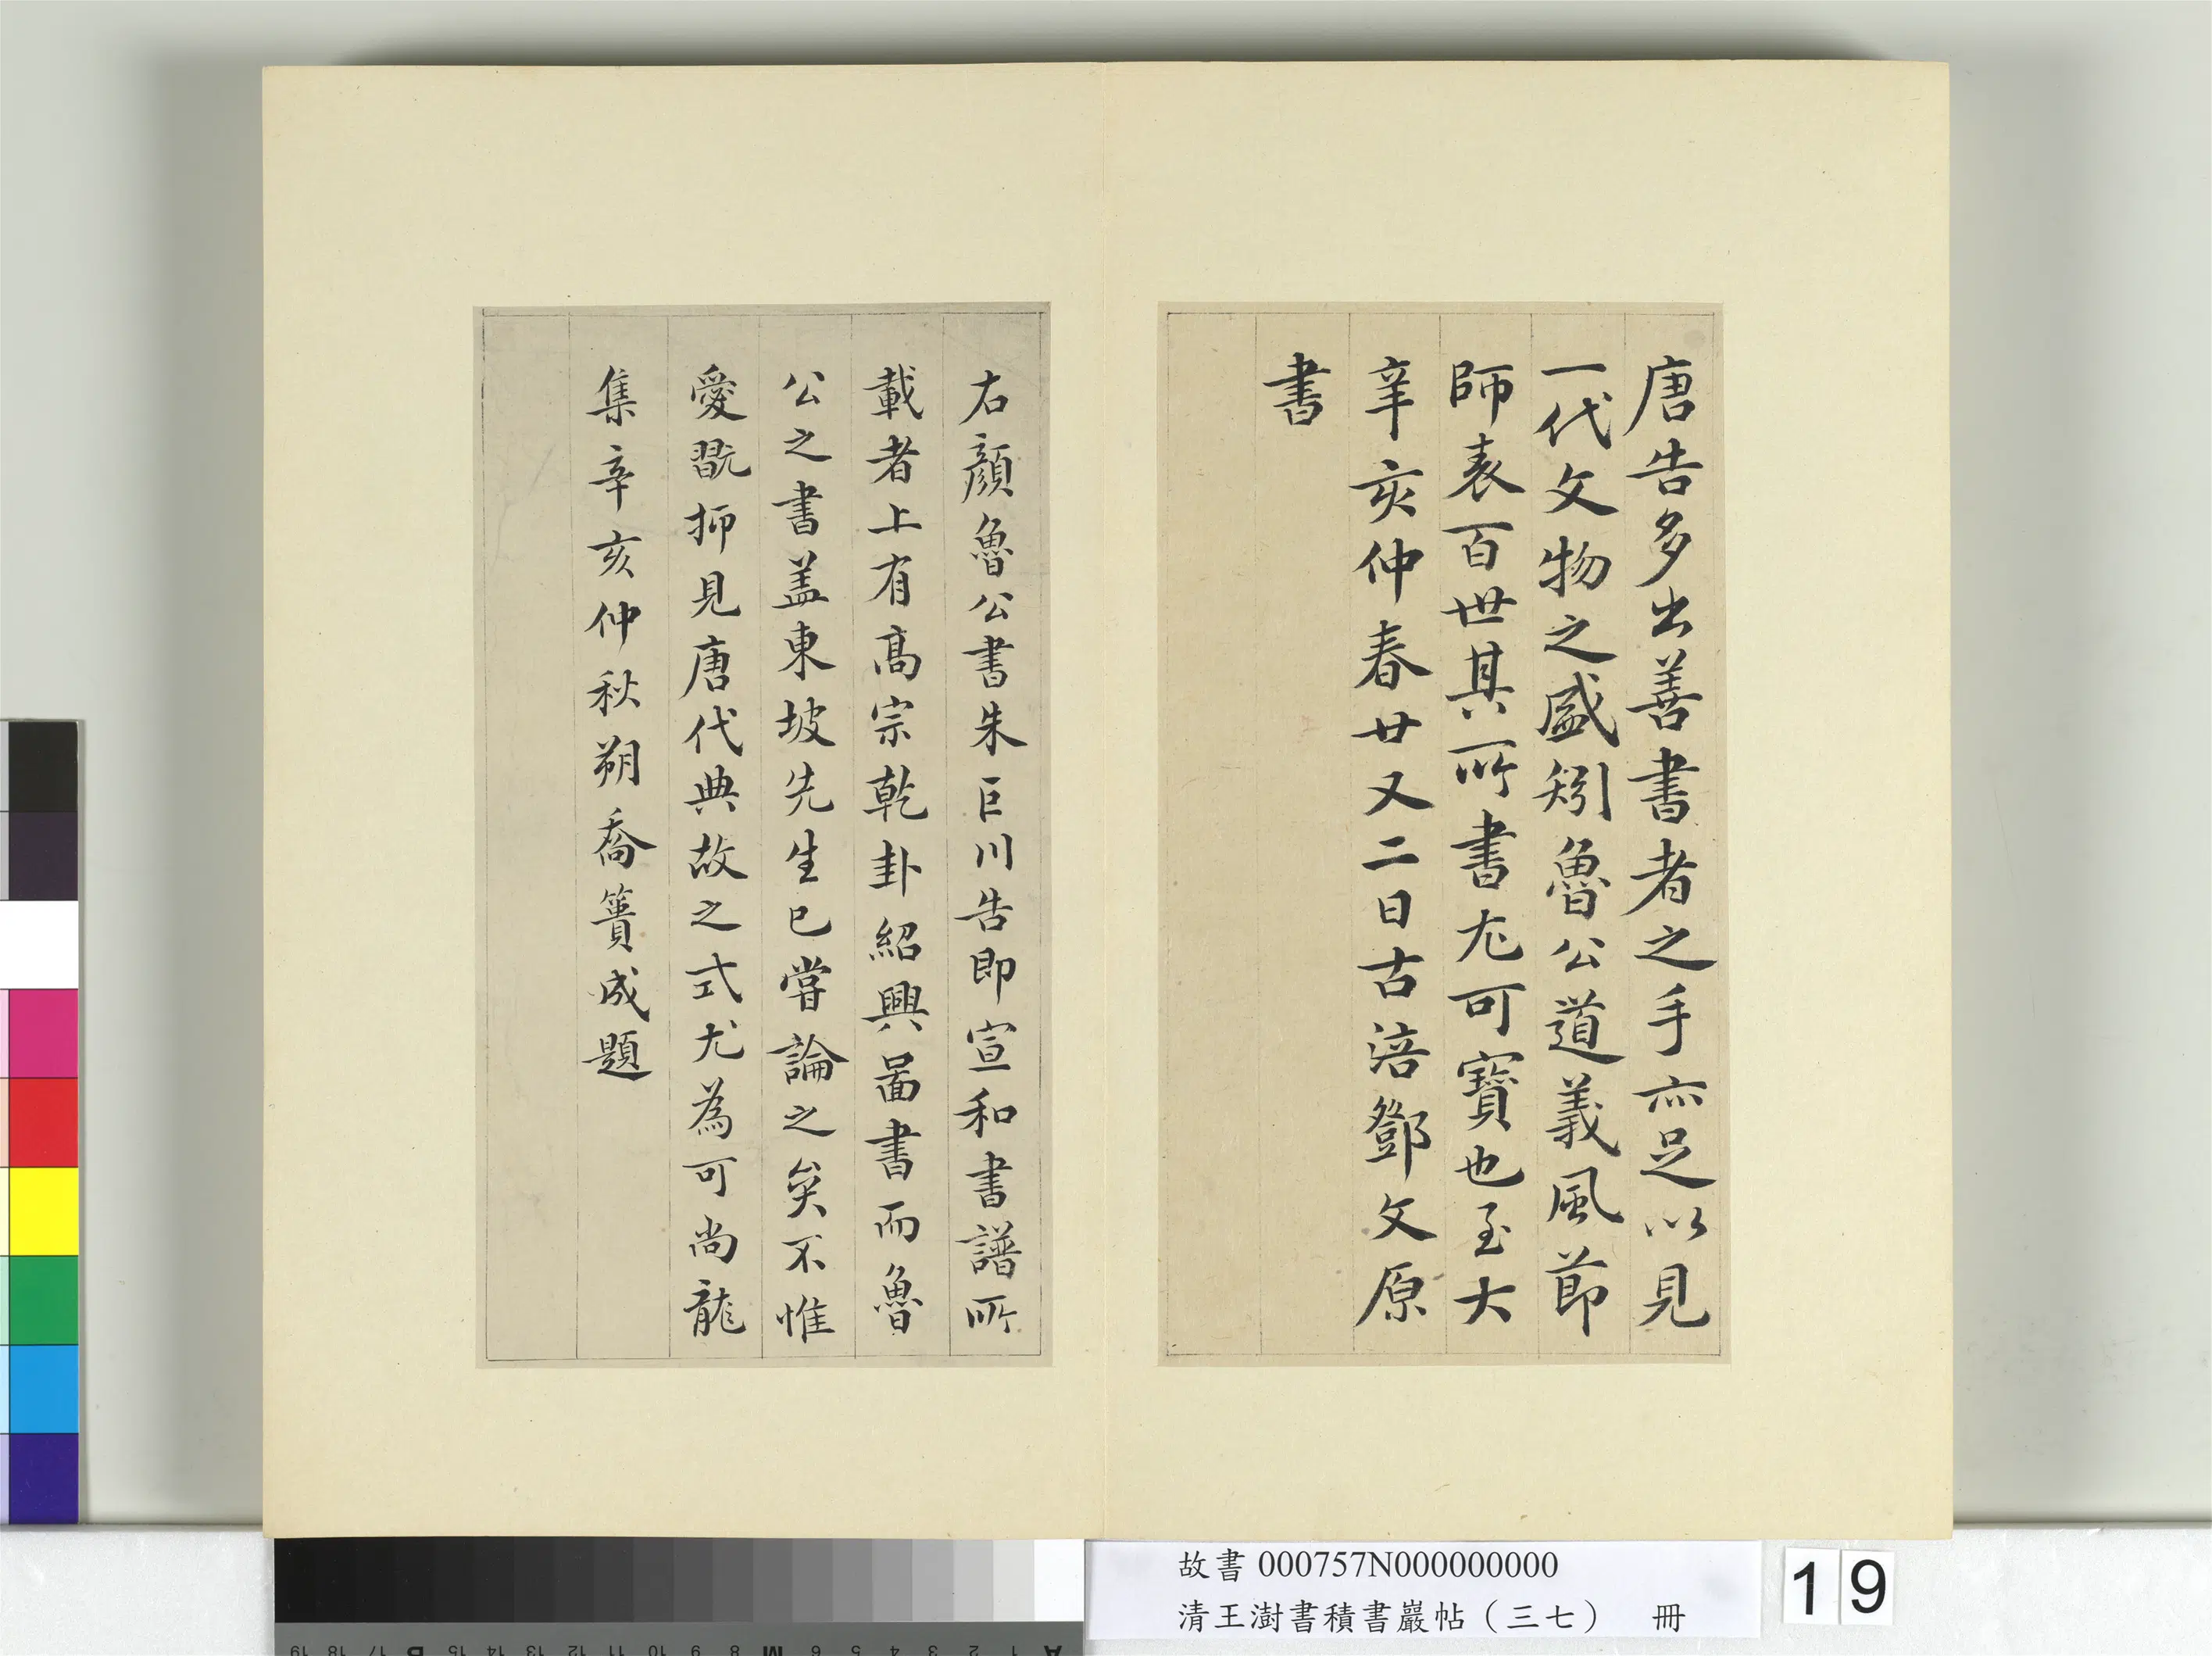 唐告多出善書者之手亦足以見
一代文物之盛矧魯公道義風節
師表百世其所書尤可寶也至大
辛亥仲春廿又二日古涪鄧文原
書
右顏魯公書朱巨川告即宣和書譜所
載者上有高宗乾卦紹興圖書而魯
公之書盖東坡先生已嘗論之矣不惟
愛翫抑見唐代典故之式尤為可尚龍
集辛亥仲秋朔喬簣成題
故書 000757N000000000
清王澍書積書巖帖（三七） 冊
19
A 1 2 3 4 5 6 M 8 9 10 11 12 13 14 15 B 17 18 19